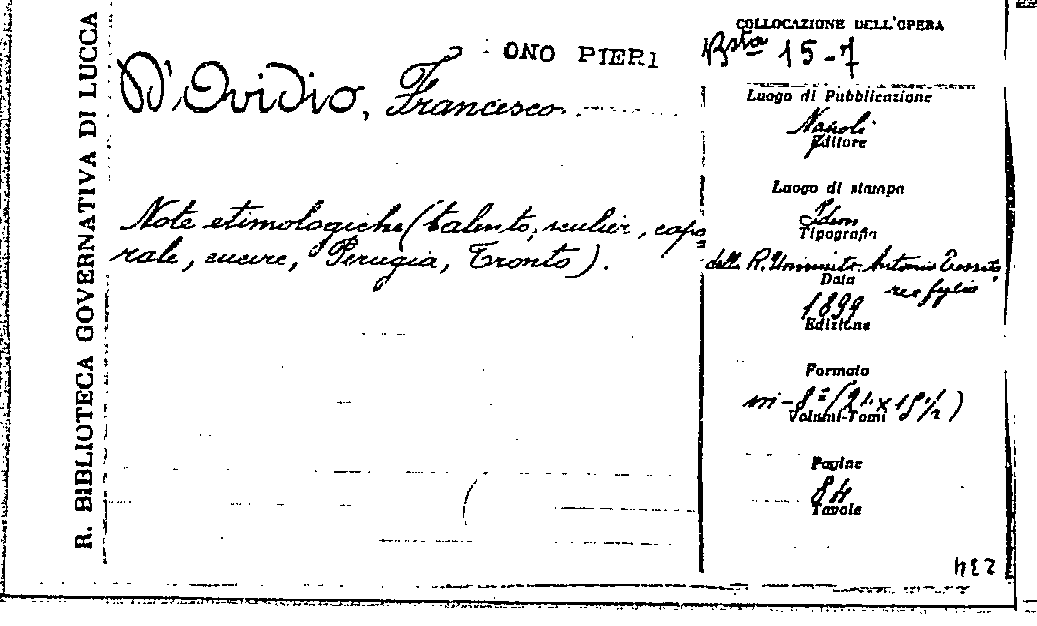 R. BIBLIOTECA GOVERNATIVA DI LUCCA
ONO PIERI
D'Ovidio, Francesco
Note etimologiche (talento, sculier, capo
rale, cucire, Perugia, Tronto).
COLLOCAZIONE DELL'OPERA
Bsta 15-7
Luogo di Pubblicazione
Napoli
Editore
Luogo di stampa
Idem
Tipografia
della R. Università Antonio
Data
e figlio
1899
Edizione
Formato
in-8º (24 x 18½)
Volumi-Tomi
Pagine
84
Tavole
234